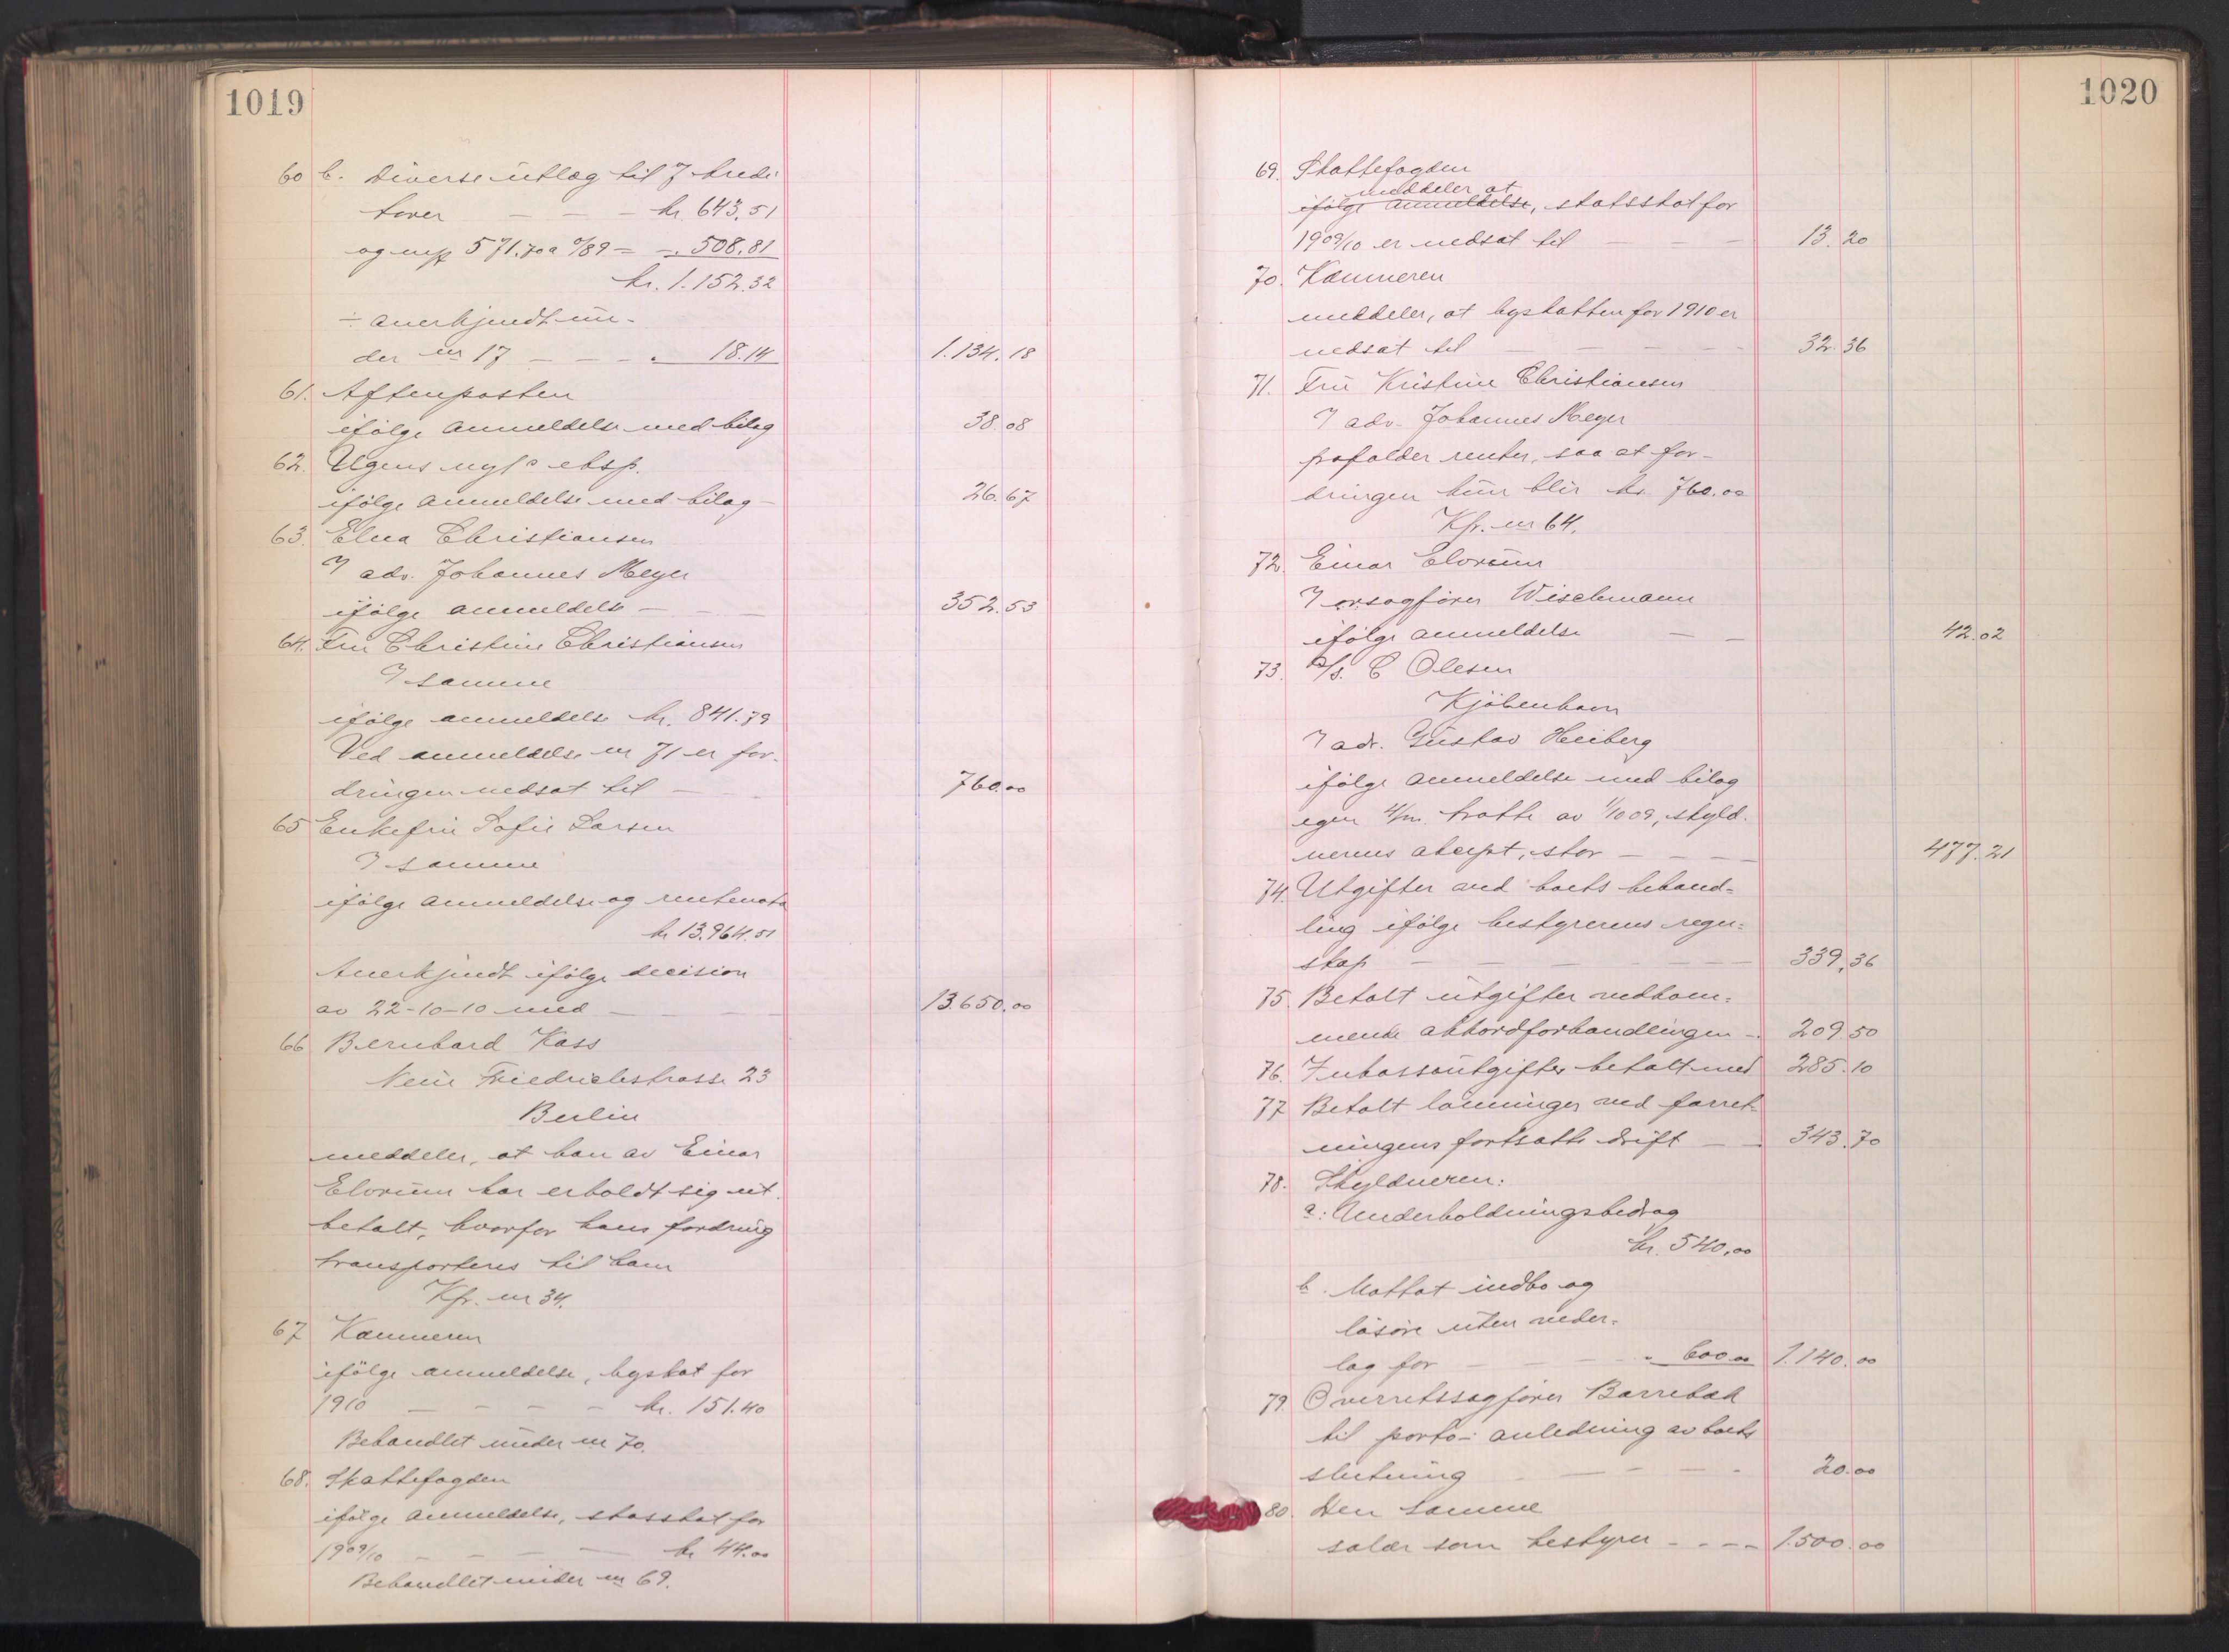 1019
60 b. Diverse utlæg til 7 kredi-
torer — — — kr. 643.51
og 571.70 a 0/89 = -. 508.81
kr. 1.152.32
÷ anerkjendt un-
der nr 17 — — — . 18.14 1.134.18
61. Aftenposten
ifølge anmeldelse med bilag 38.08
62. Ugens nyts eksp.
ifølge anmeldelse med bilag — 26.67
63. Elna Christiansen
adv. Johannes Meyer
ifølge anmeldelse — — — 352.53
64. Fru Christine Christiansen
samme
ifølge anmeldelse kr. 841.79
Ved anmeldelse nr 71 er for-
dringen nedsat til — — 760.00
65 Enkefru Sofie Larsen
samme
ifølge anmeldelse og rentenota
kr 13.964.51
Anerkjendt ifølge decision
av 22-10-10 med — — — 13.650.00
66 Bernhard Kass
Neue Friedrichstrasse 23
Berlin
meddeler, at han av Einar
Elvrum har erholdt sig ut-
betalt, hvorfor hans fordring
transporteres til ham
Kfr. nr 34.
67 Kæmneren
ifølge anmeldelse, byskat for
1910 — — — — kr. 151.40
Behandlet under nr 70.
68. Skattefogden
ifølge anmeldelse, stasskat for
1909/10 — — — — kr 44.00
Behandlet under nr 69.
1020
69. Skattefogden
meddeler at
ifølge anmeldelse, statsskat for
1909/10 er nedsat til — — — 13.20
70. Kæmneren
meddeler, at byskatten for 1910 er
nedsat til — — — — 32.36
71. Fru Kristine Christiansen
adv. Johannes Meyer
frafalder renter, saa at for-
dringen kun blir kr 760.00
Kfr. nr 64.
72. Einar Elvrum
orsagfører Wischmann
ifølge anmeldelse — — 42.02
73. A/S. C Olesen
Kjøbenhavn
adv. Gustav Heiberg
ifølge anmeldelse med bilag
egen 4/m. tratte av 1/10 09, skyld-
nerens aksept, stor — — — — 477.21
74. Utgifter ved boets behand-
ling ifølge bestyrerens regn-
skap — — — — — 339.36
75. Betalt utgifter vedkom-
mende akkordforhandlingen —. 209.50
76. Inkassoutgifter betalt med 285.10
77 Betalt lønninger ved forret-
ningens fortsatte drift — — 343.70
78. Skyldneren:
a: Underholdningsbidrag
kr. 540.00
b. Mottat indbo og
løsøre uten veder-
lag for — — — - 600.00 1.140.00
79. Overretssagfører Barrebæk
til porto i anledning av boets
slutning — — — — 20.00
80. Den samme
salær som bestyrer - - - - 1.500.00